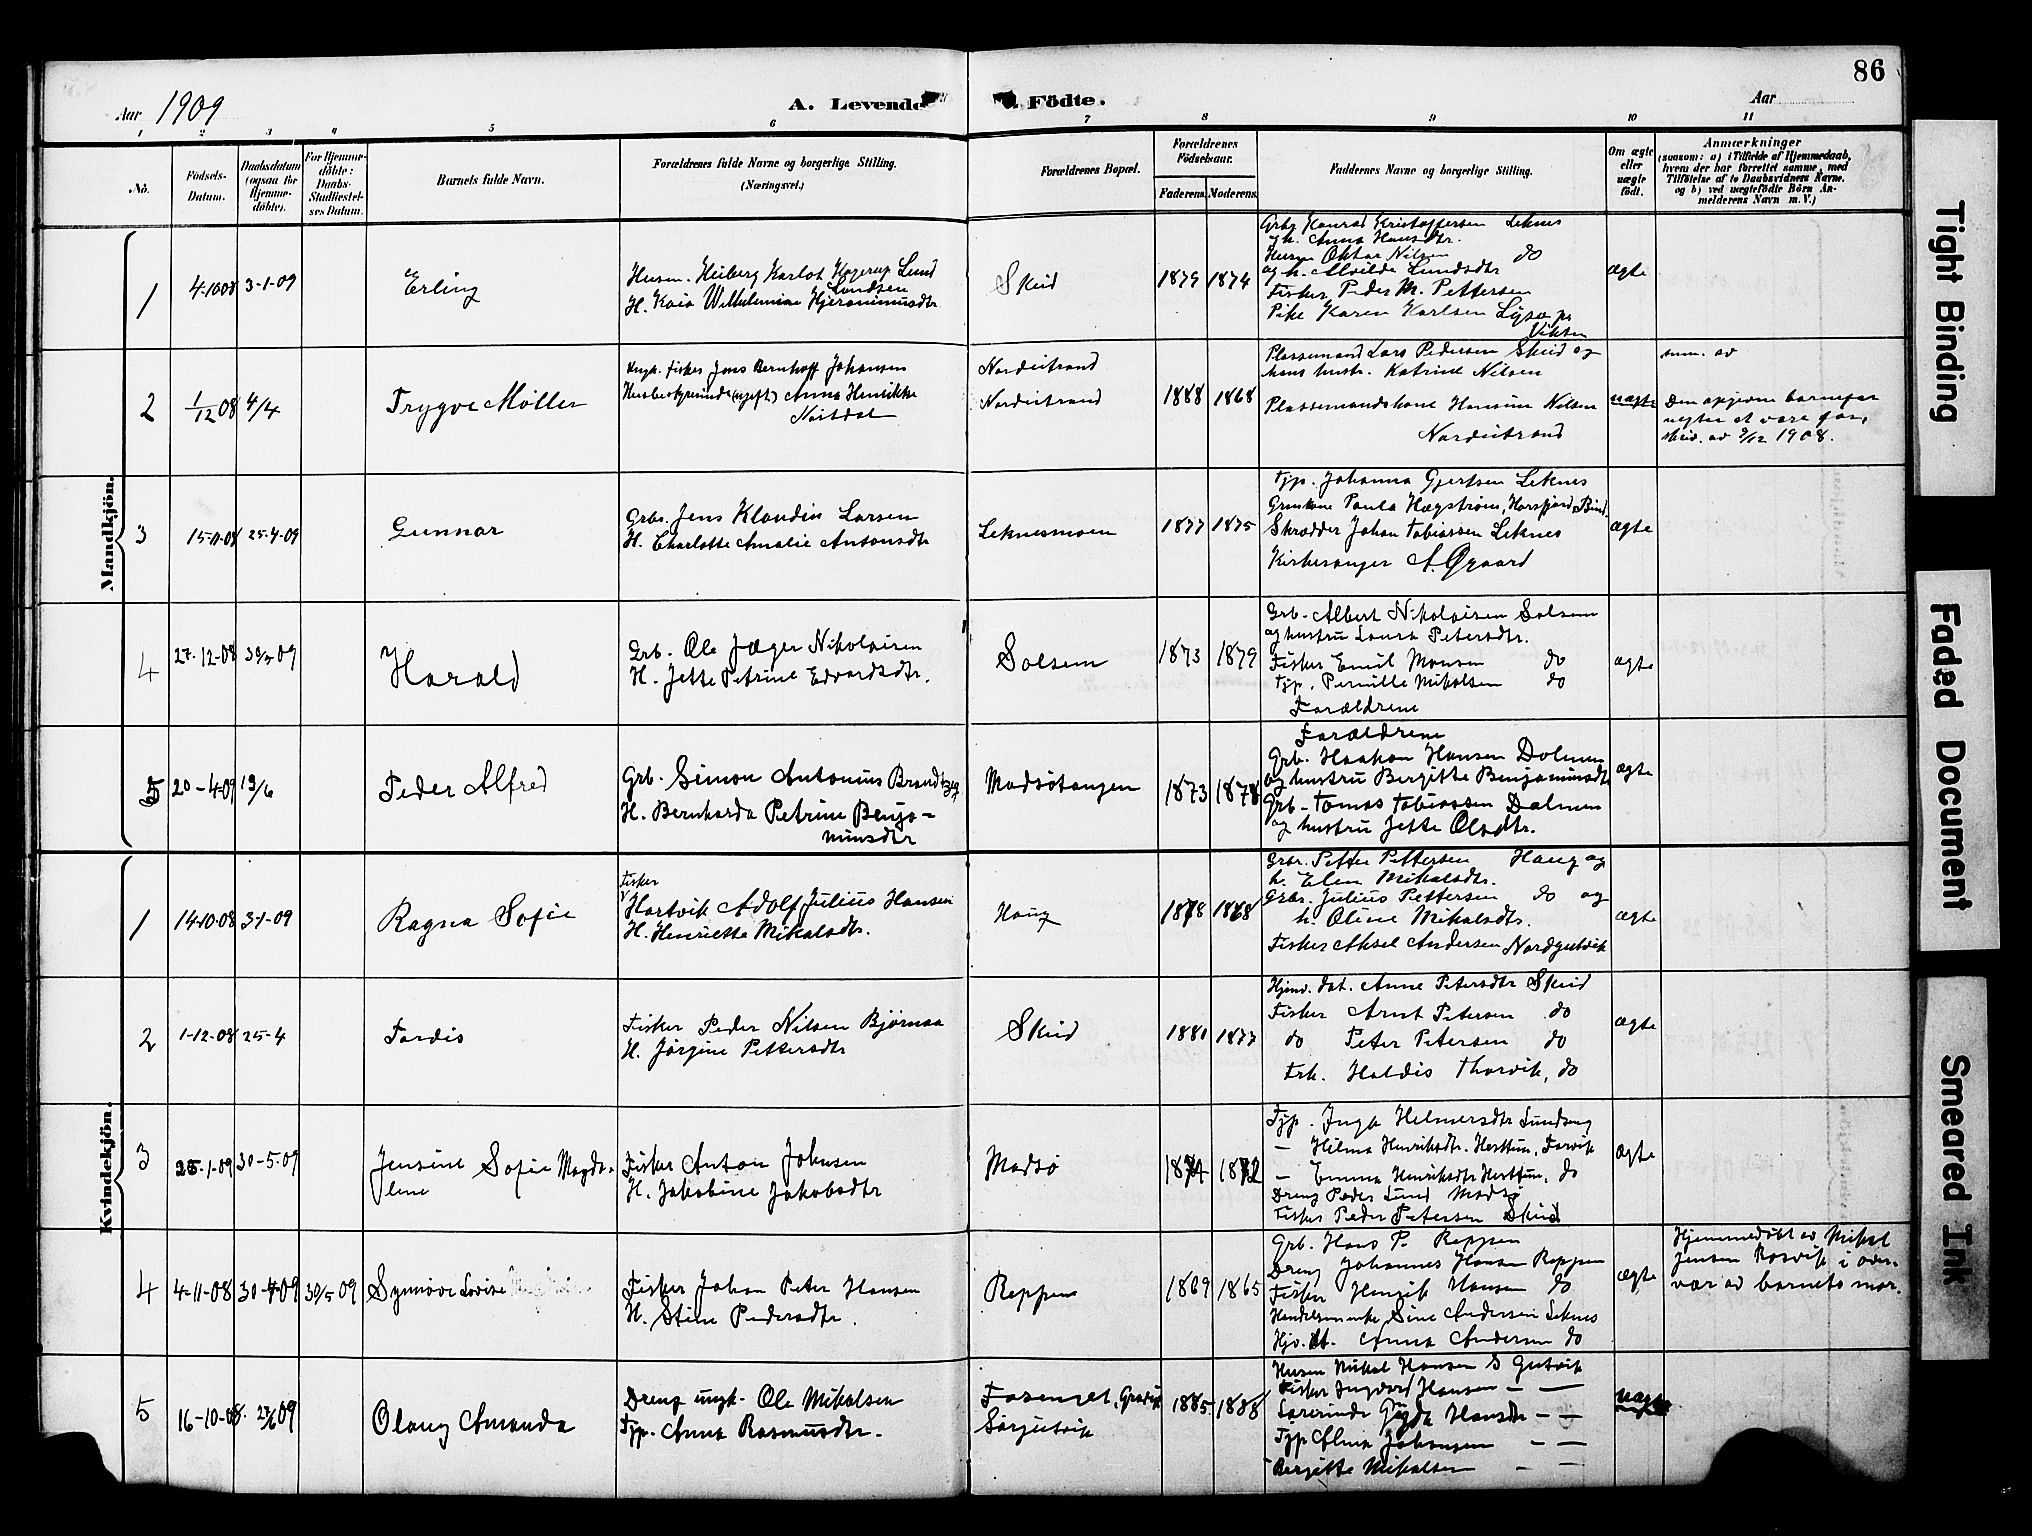 86
Aar 1909
A. Levende Födte.
Aar
1 2 3 4 5 6 7 8 9 10 11
No.
Födsels-Datum.
Daabsdatum (ogsaa for Hjemmedöbte).
For Hjemmedöbte: Daabs-Stadfæstelses Datum.
Barnets fulde Navn.
Forældrenes fulde Navne og borgerlige Stilling.
(Næringsvei.)
Forældrenes Bopæl.
Forældrenes Födselsaar.
Faderens. Moderens.
Faddernes Navne og borgerlige Stilling.
Om ægte eller uægte födt.
Anmærkninger
(saasom: a) i Tilfælde af Hjemmedaab, hvem der har forrettet samme, med Tilföielse af to Daabsvidners Navne, og b) ved uægtefödte Börn Anmelderens Navn m. V.)
Mandkjön.
1
4-10 08
3-1-09
Erling
Husm. Heiberg Karlot Kagerup Lund
Lundsen
H. Kaia Wilhelmine Hjeronimusdtr
Skeid
1879
1874
Grbr Konrad Kristoffersen Leknes
og h. Anna Hansdtr.
Husm Oktav Nilsen do
og h. Alvilde Lundsdtr
Fisker Peder M. Pettersen
Pike Karen Karlsen
ægte
2
1/12 08
4/4
Trygve Möller
Ungk. Fisker Jens Bernhoff Johansen
Husbestyrerinde (ugift) Anna Henrikke
Nordeistrand
Nordeistrand
1888
1868
Plassemand Lars Pedersen Skeid og
hans hustr. Katrine Nilsen
Plassemandskone Hansine Nilsen
Nordeistrand
uægte
Den opgivne barnefar
negter at være far,
skriv. av 9/12 1908.
3
15-11-08
25-4-09
Gunnar
Grbr. Jens Klaudin Larsen
H. Charlotte Amalie Antonsdtr
Leknesmoen
1877
1875
Tjp. Johanna Gjertsen Leknes
Grmkone Paula Hægström, Horsfjord, Bind.
Skrædder Johan Tobiassen Leknes
Kirkesanger A. Ögaard
ægte
4
27-12-08
30/5 09
Harald
Grb. Ole Jæger Nikolaisen
H. Jette Petrine Edvardsdtr.
Solsem
1873
1879
Grb. Albert Nikolaisen Solsem
og hustru Laura Petersdtr.
Fisker Emil Monsen do
Tjp. Pernille Mikalsen do
Forældrene
ægte
5
20-4-09
13/6
Peder Alfred
Grb. Simon Antonius Brandtzæg
H. Bernharda Petrine Benja-
minsdtr
Madsötangen
1873
1878
Forældrene
Grb. Haakon Hansen Dolmen
og hustru Bergitte Benjaminsdt
Grb. Tomas Tobiassen Dolmen
og hustru Jette Olsdtr.
ægte
Kvindekjön.
1
14-10-08
3-1-09
Ragna Sofie
Fisker
Hartvik Adolf Julius Hansen
H. Henriette Mikalsdtr.
Haug
1878
1868
Grbr. Petter Pettersen Haug og
h. Elen Mikalsdtr.
Grbr. Julius Pettersen do og
h. Oline Mikalsdtr.
Fisker Aksel Andersen Nordgutvik
ægte
2
1-12-08
25-4
Tordis
Fisker Peder Nilsen Björnaa
H. Jörgine Pettersdtr
Skeid
1880
1877
Hjmv. dat. Anne Petersdtr Skeid
Fisker Arnt Petersen do
do Peter Petersen do
Frk. Haldis Thorvik, do
ægte
3
25-1-09
30-5-09
Jensine Sofie Magda-
lene
Fisker Anton Johnsen
H. Jakobine Jakobsdtr
Madsö
1874
1872
Tjp. Inga Helmersdtr Lundseng
— Hilma Henriksdtr. Herttun, Forvik
— Emma Henriksdtr Herttun, do
Dreng Peder Lund Madsö
Fisker Peder Petersen Skeid
ægte
4
4-11-08
30-4-09
30/5 09
Synnöve Lovise
Fisker Johan Peter Hansen
H. Stine Pedersdtr.
Reppen
1869
1865
Grb. Hans P. Reppen
Dreng Johannes Hansen Reppen
Fisker Henrik Hansen do
Handelsmenke Sine Andersen Leknes
Hjv. dt. Anna Andersen do
ægte
Hjemmedöbt av Mikal
Jensen Rosvik i over-
vær av barnets mor.
5
16-10-08
27/6 09
Olaug Amanda
Dreng ungk. Ole Mikalsen
Tjp. Anna Rasmusdtr.
Sörgutvik
1885
1888
Husm Mikal Hansen S Gutvik
Fisker Ingvard Hansen — —
Lærerinde Gyda Hansdtr — —
Tjp Alma Johansen — —
Bergitte Mikalsen — —
uægte
Tight Binding
Faded Document
Smeared Ink